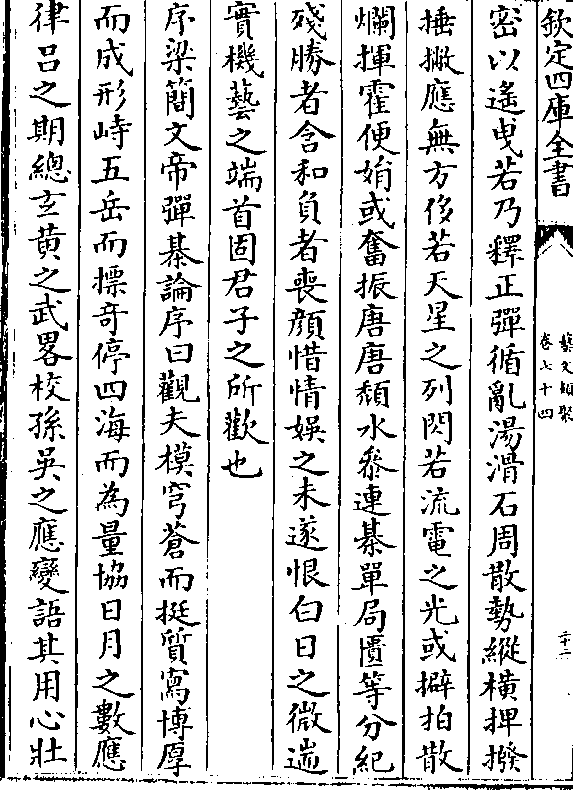 欽定四庫全書
藝文類聚
卷七十四
十二
密以遙曳若乃釋正彈循亂湯滑石周散勢縱横押撥
捶撇應無方侈若天星之列閃若流電之光或擗拍散
爛揮霍便娟或奮振唐唐頽水叅連棊單局匱等分紀
殘勝者含和負者喪顔惜情娱之未遂恨白日之微遄
實機藝之端首固君子之所歡也
序梁簡文帝彈棊論序曰觀夫模穹蒼而挺質寫博厚
而成形峙五岳而摽奇停四海而為量協日月之數應
律吕之期總玄黄之武畧校孫吳之應變語其用心壯